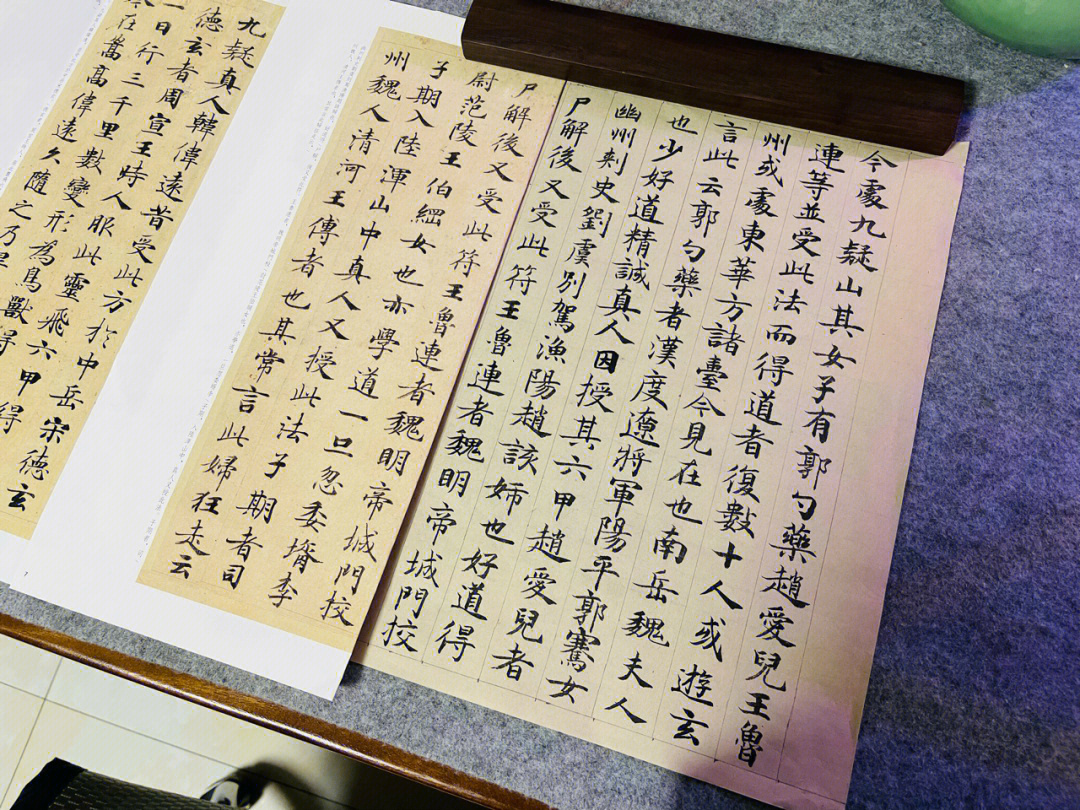 今處九疑山其女子有郭勺藥趙愛兒王魯
連等並受此法而得道者復數十人或遊玄
州或處東華方諸臺今見在也南岳魏夫人
言此云郭勺藥者漢度遼將軍陽平郭騫女
也少好道精誠真人因授其六甲趙愛兒者
幽州刾史劉虞別駕漁陽趙該姉也好道得
尸解後又受此符王魯連者魏明帝城門挍
尸解後又受此符王魯連者魏明帝城門挍
尉范陵王伯綱女也亦學道一旦忽委壻李
子期入陸渾山中真人又授此法子期者司
州魏人清河王傳者也其常言此婦狂走云
九疑真人韓偉遠昔受此方於中岳宋德玄
德玄者周宣王時人服此靈飛六甲得
一日行三千里數變形為鳥獸得
在嵩高偉遠久隨之乃